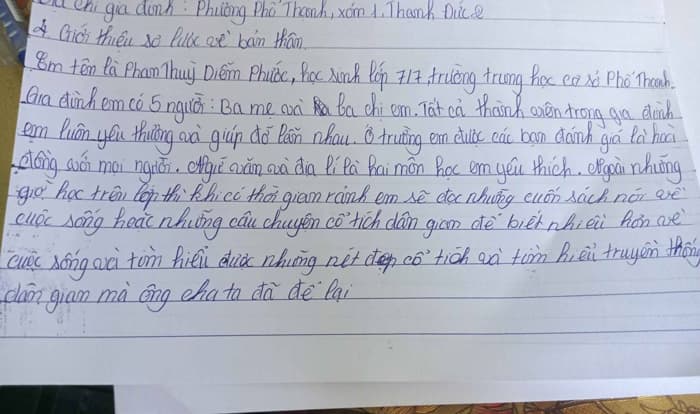 Địa chỉ gia đình: Phường Phổ Thạnh, xóm 1. Thạnh Đức 2
* Giới thiệu sơ lược về bản thân.
Em tên là Phạm Thuỳ Diễm Phước, học sinh lớp 7/7, trường trung học cơ sở Phổ Thạnh.
Gia đình em có 5 người: Ba mẹ và ba chị em. Tất cả thành viên trong gia đình
em luôn yêu thương và giúp đỡ lẫn nhau. Ở trường em được các bạn đánh giá là hoà
đồng với mọi người. Ngữ văn và địa lí là hai môn học em yêu thích. Ngoài những
giờ học trên lớp thì khi có thời gian rảnh em sẽ đọc những cuốn sách nói về
cuộc sống hoặc những câu chuyện cổ tích dân gian để biết nhiều hơn về
cuộc sống và tìm hiểu được những nét đẹp cổ tích và tìm hiểu truyền thống
dân gian mà ông cha ta đã để lại